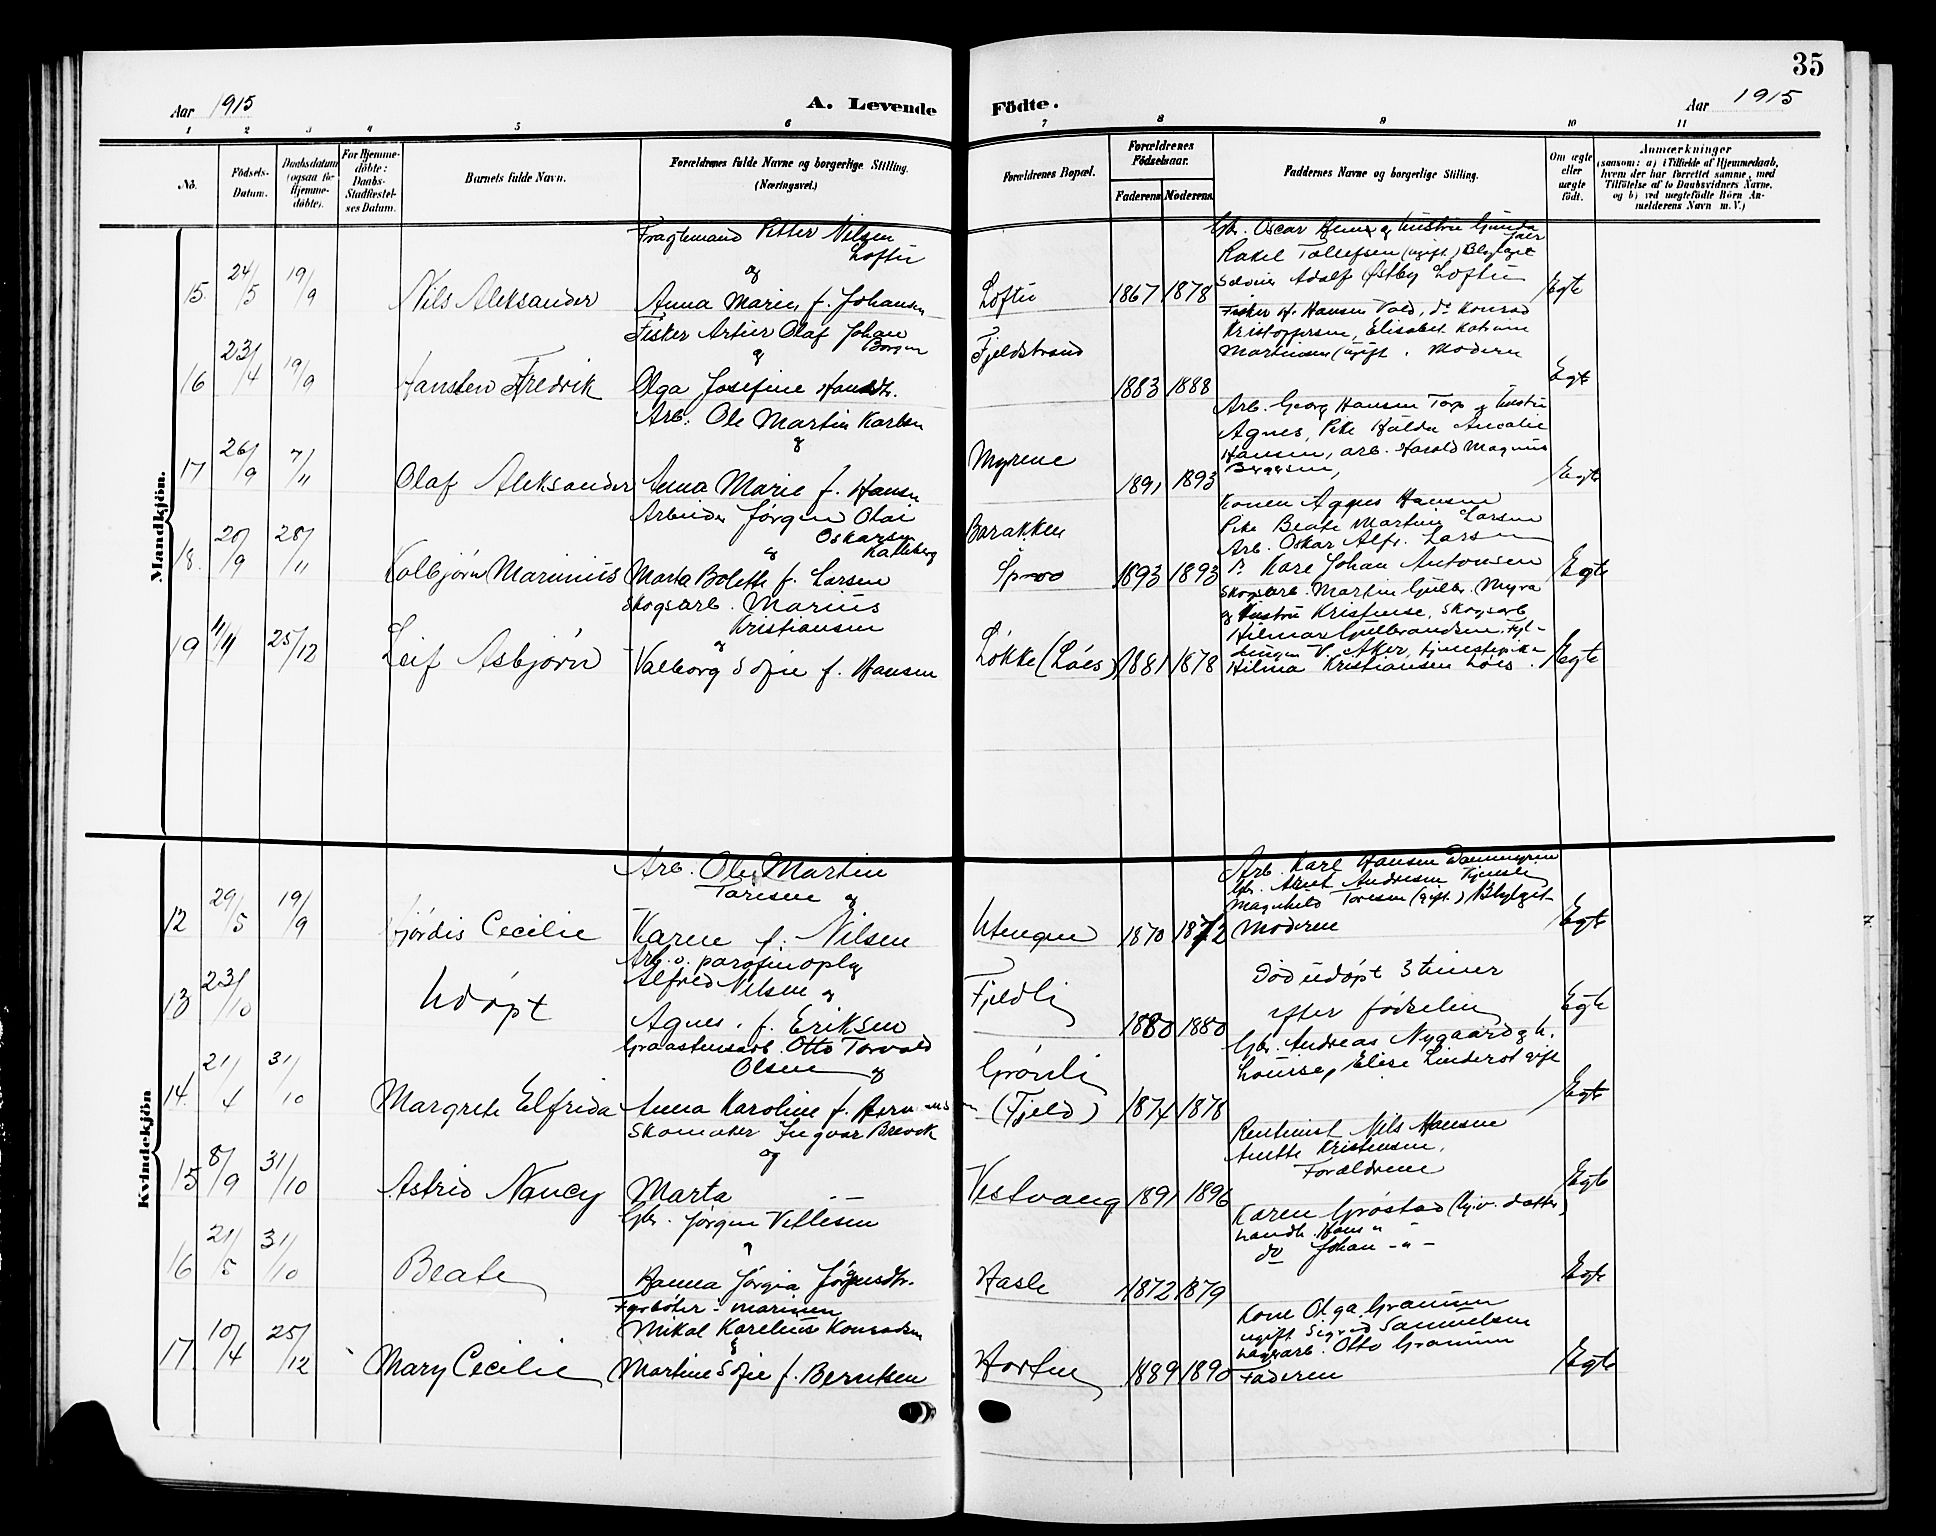 35
Aar 1915
A. Levende Födte.
Aar 1915
1 2 3 4 5 6 7 8 9 10 11
No.
Födsels-Datum.
Daabsdatum (ogsaa for Hjemme-döbte).
For Hjemme-döbte: Daabs-Stadfæstel-ses Datum.
Barnets fulde Navn.
Forældrenes fulde Navne og borgerlige Stilling.
(Næringsvei.)
Forældrenes Bopæl.
Forældrenes Födselsaar.
Faderens Moderens
Faddernes Navne og borgerlige Stilling.
Om ægte eller uægte født.
Anmærkninger
(saasom: a) i Tilfælde af Hjemmedaab,
hvem der har forrettet samme, med
Tilföielse af to Daabsvidners Navne,
og b) ved uægtefödte Börn An-
melderens Navn m. V.)
Mandkjön.
15. 24/5 19/9 Nils Aleksander
Fragtemand Petter Nilsen
Loftu
og
Anna Marie, f. Johansen
Loftu 1867 1878
Rakel Tollefsen (ugift)
Adolf Østby Loftu
Egte
16 23/4 19/9 Hansten Fredrik
Fisker Artur Olaf Johan
Borgen
og
Olga Josefine Hansdtr.
Fjeldstrand 1883 1888
Fisker H. Hansen Vold, do Konrad
Kristoffersen, Elisabet Katrine
Martinsen (ugift. Moderen
Egte
17 26/9 7/11 Olaf Aleksander
Arb. Ole Martin Karlsen
og
Anna Marie f. Hansen
Myrene 1891 1893
Arb. Georg Hansen Torp og hustru
Agnes, Pike Hulda Amalie
Hansen, arb. Harald Magnus
Bergersen,
Egte
18. 20/9 28/11 Kolbjørn Marinius
Arbeider Jørgen Olai
Oskarsen
og Kalleberg
Marta Bolette f. Larsen
Barakken
Sproo 1893 1893
Konen Agnes Hansen
Pike Beate Martine Larsen
Arb. Oskar Alfr. Larsen
Kare Johan Antonsen
Egte
19 11/11 25/12 Leif Asbjørn
Skogsarb. Marius
Kristiansen
og
Valborg Sofie f. Hansen
Løkke (Løes) 1881 1878
Skogsarb. Martin Gulbr. Myra
og hustru Kristense, Skogsarb
Hilmar Gulbrandsen,
V. Aker, tjenestepike
Hilma Kristiansen Løes.
Egte
Kvindekjön
12 29/5 19/9 Hjördis Cecilie
Arb. Ole Martin
Toresen og
Karen f. Nilsen
Utengen 1870 1872
Arb. Karl Hansen
Andresen
Magnhild Toresen (gift.)
Moderen
Egte
13 23/10 Udøpt
Arb. o. parafinopl
Alfred Nilsen og
Agnes. f. Eriksen
Fjeldli 1880 1880
Död udøpt 3 timer
efter fødselen
Egte
14. 21/4 31/10 Margrete Elfrida
Graastensarb. Otto Torvald
Olsen og
Anna Karoline f.
Grönli
(Fjeld) 1874 1878
Gbr. Andreas Nygaard og h.
Louise, Elise Linderot gift
Egte
15 8/9 31/10 Astrid Nancy
Skomaker Ingvar Brevik
og
Marta
Vestvang 1891 1896
Rentenist Nils Hansen
Anette Kristensen,
Forældrene
Egte
16 21/5 31/10 Beate
Gbr. Jørgen Vettesen
og
Hanna Jørgia Jørgensdtr.
Hasle 1872 1879
Karen Grøstad datter
Landh. Hans "
do Johan - " -
Egte
17 10/4 25/12 Mary Cecilie
Fyrbøter - marinen
Mikal Karelius Konradsen
&
Martine Sofie f. Berntsen
Horten 1889 1890
Kone Olga Granum
ugift Sigrid Samuelsen
arb. Otto Granum
Faderen
Egte